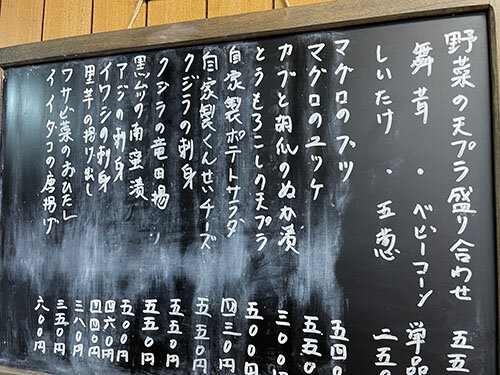 野菜の天プラ盛り合わせ 五五
舞茸・ベビーコーン 単品
しいたけ・玉葱 二五〇
マグロのブツ 五四〇
マグロのユッケ 五五〇
カブと胡瓜のぬか漬 三〇〇
とうもろこしの天プラ 五〇〇円
自家製ポテトサラダ 四三〇円
自家製くんせいチーズ 五五〇円
クジラの刺身 五五〇円
クジラの竜田揚 五五〇円
の南蛮漬 五〇〇円
アジの刺身 四六〇円
イワシの刺身 四四〇円
里芋の揚げ出し 三八〇円
ワサビ菜のおひたし 三五〇円
イイダコの唐揚げ 六〇〇円